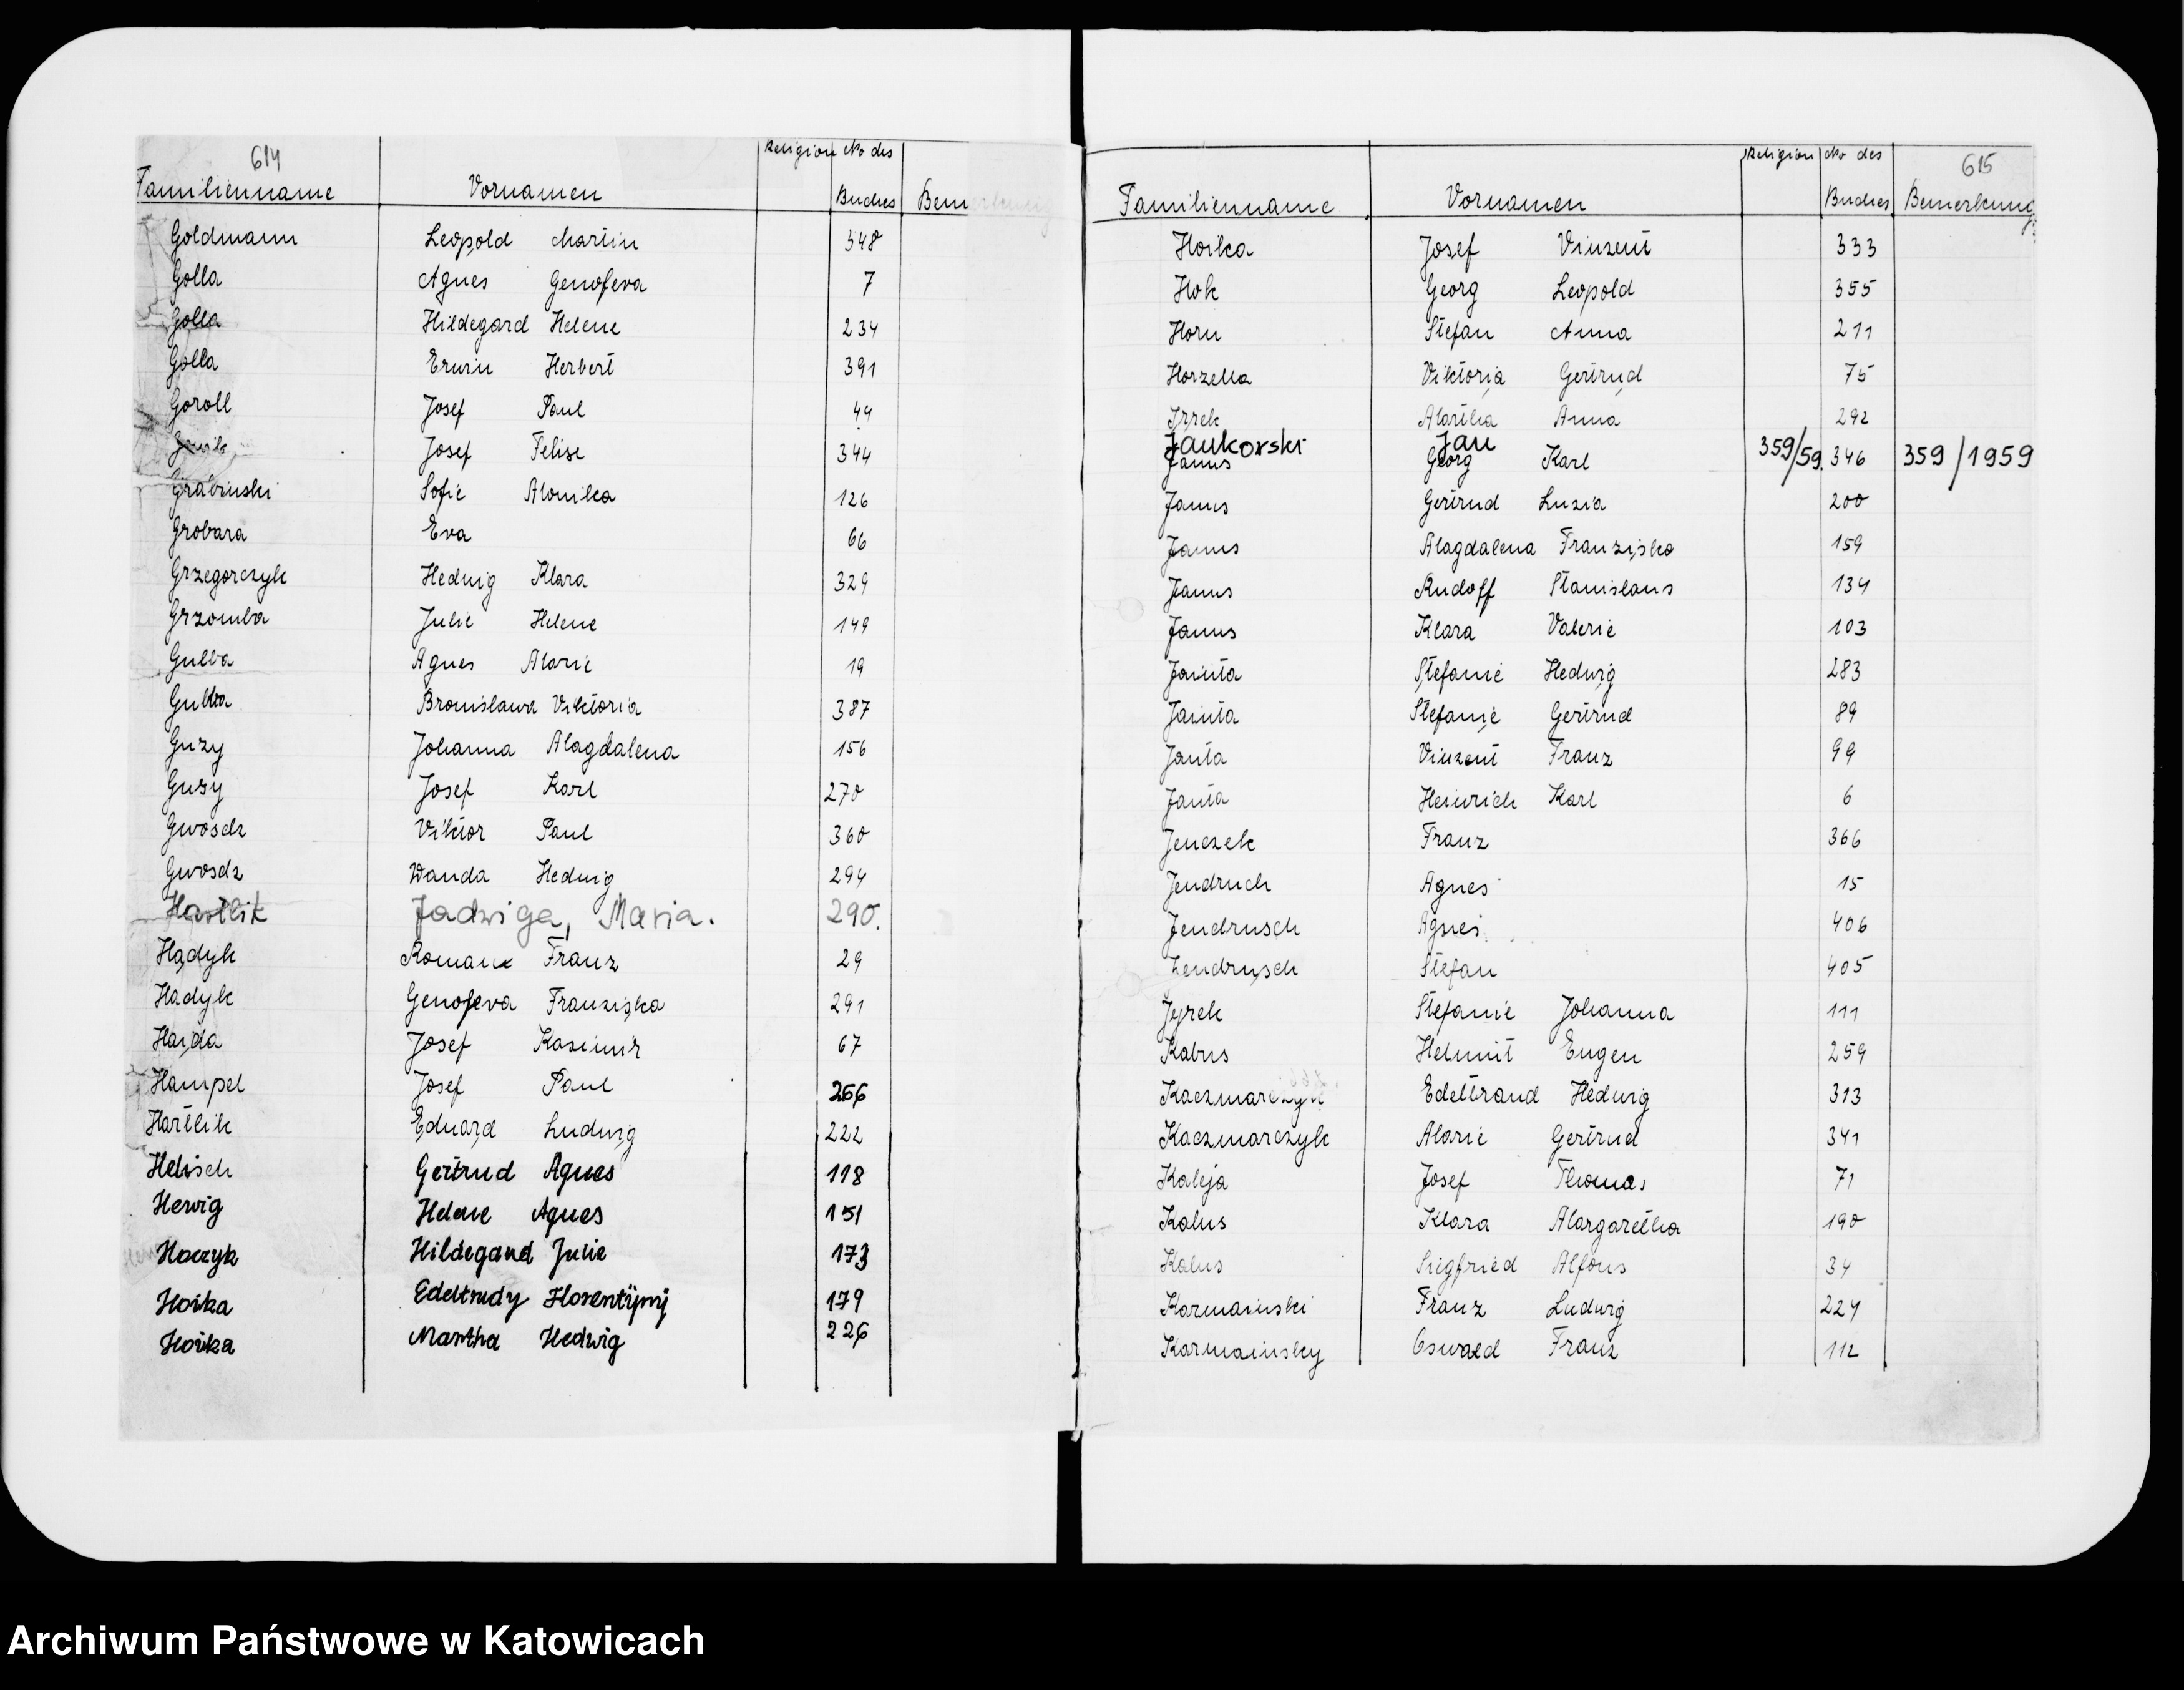 614
Familienname Vornamen Religion No des Buches Bemerkung
Goldmann Leopold Martin 348
Golla Agnes Genofeva 7
Golla Hildegard Helene 234
Golla Erwin Herbert 391
Goroll Josef Paul 44
Josef Felixe 344
Grabinski Sofie Monika 126
Grobara Eva 66
Grzegorczyk Hedwig Klara 329
Grzomba Julie Helene 149
Gulba Agnes Marie 19
Gulba Bronislawa Viktoria 387
Guzy Johanna Magdalena 156
Guzy Josef Karl 270
Gwosdz Viktor Paul 360
Gwosdz Wanda Hedwig 294
Hartlik Jadwiga, Maria. 290.
Hadyk Romane Franz 29
Hadyk Genofeva Franziska 291
Haida Josef Kasimir 67
Hampel Josef Paul 266
Hartlik Eduard Ludwig 222
Helisch Gertrud Agnes 118
Herwig Helene Agnes 151
Hoczyk Hildegard Julie 173
Hoika Edeltrudy Florentyny 179
Hoika Martha Hedwig 226
615
Familienname Vornamen Religion No des Buches Bemerkung
Hoika Josef Vinzent 333
Hok Georg Leopold 355
Horn Stefan Anna 211
Horzella Viktoria Gertrud 75
Jyrek Martha Anna 292
Jankorski Jan 359/59 359/1959
Janus Georg Karl 346
Janus Gertrud Luzia 200
Janus Magdalena Franziska 159
Janus Rudolf Stanislaus 134
Janus Klara Valerie 103
Janta Stefanie Hedwig 283
Janta Stefanie Gertrud 89
Janta Vinzent Franz 99
Janta Heinrich Karl 6
Jenczek Franz 366
Jendruch Agnes 15
Jendrusch Agnes 406
Jendrusch Stefan 405
Jyrek Stefanie Johanna 111
Kabus Helmut Eugen 259
Kaczmarczyk Edeltraud Hedwig 313
Kaczmarczyk Marie Gertrud 341
Kaleja Josef Thomas 71
Kalus Klara Margaretha 190
Kalus Siegfried Alfons 34
Karmainski Franz Ludwig 224
Karmainsky Oswald Franz 112
Archiwum Państwowe w Katowicach